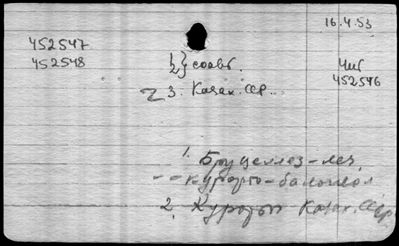 16.4.53
452547
452548
1/2 } соавт.
Чит
452546
3. Казах. ССР.
1. Бруцеллез - леч.
-- курорто-бальнеол
2. Курорты Казах. ССР.